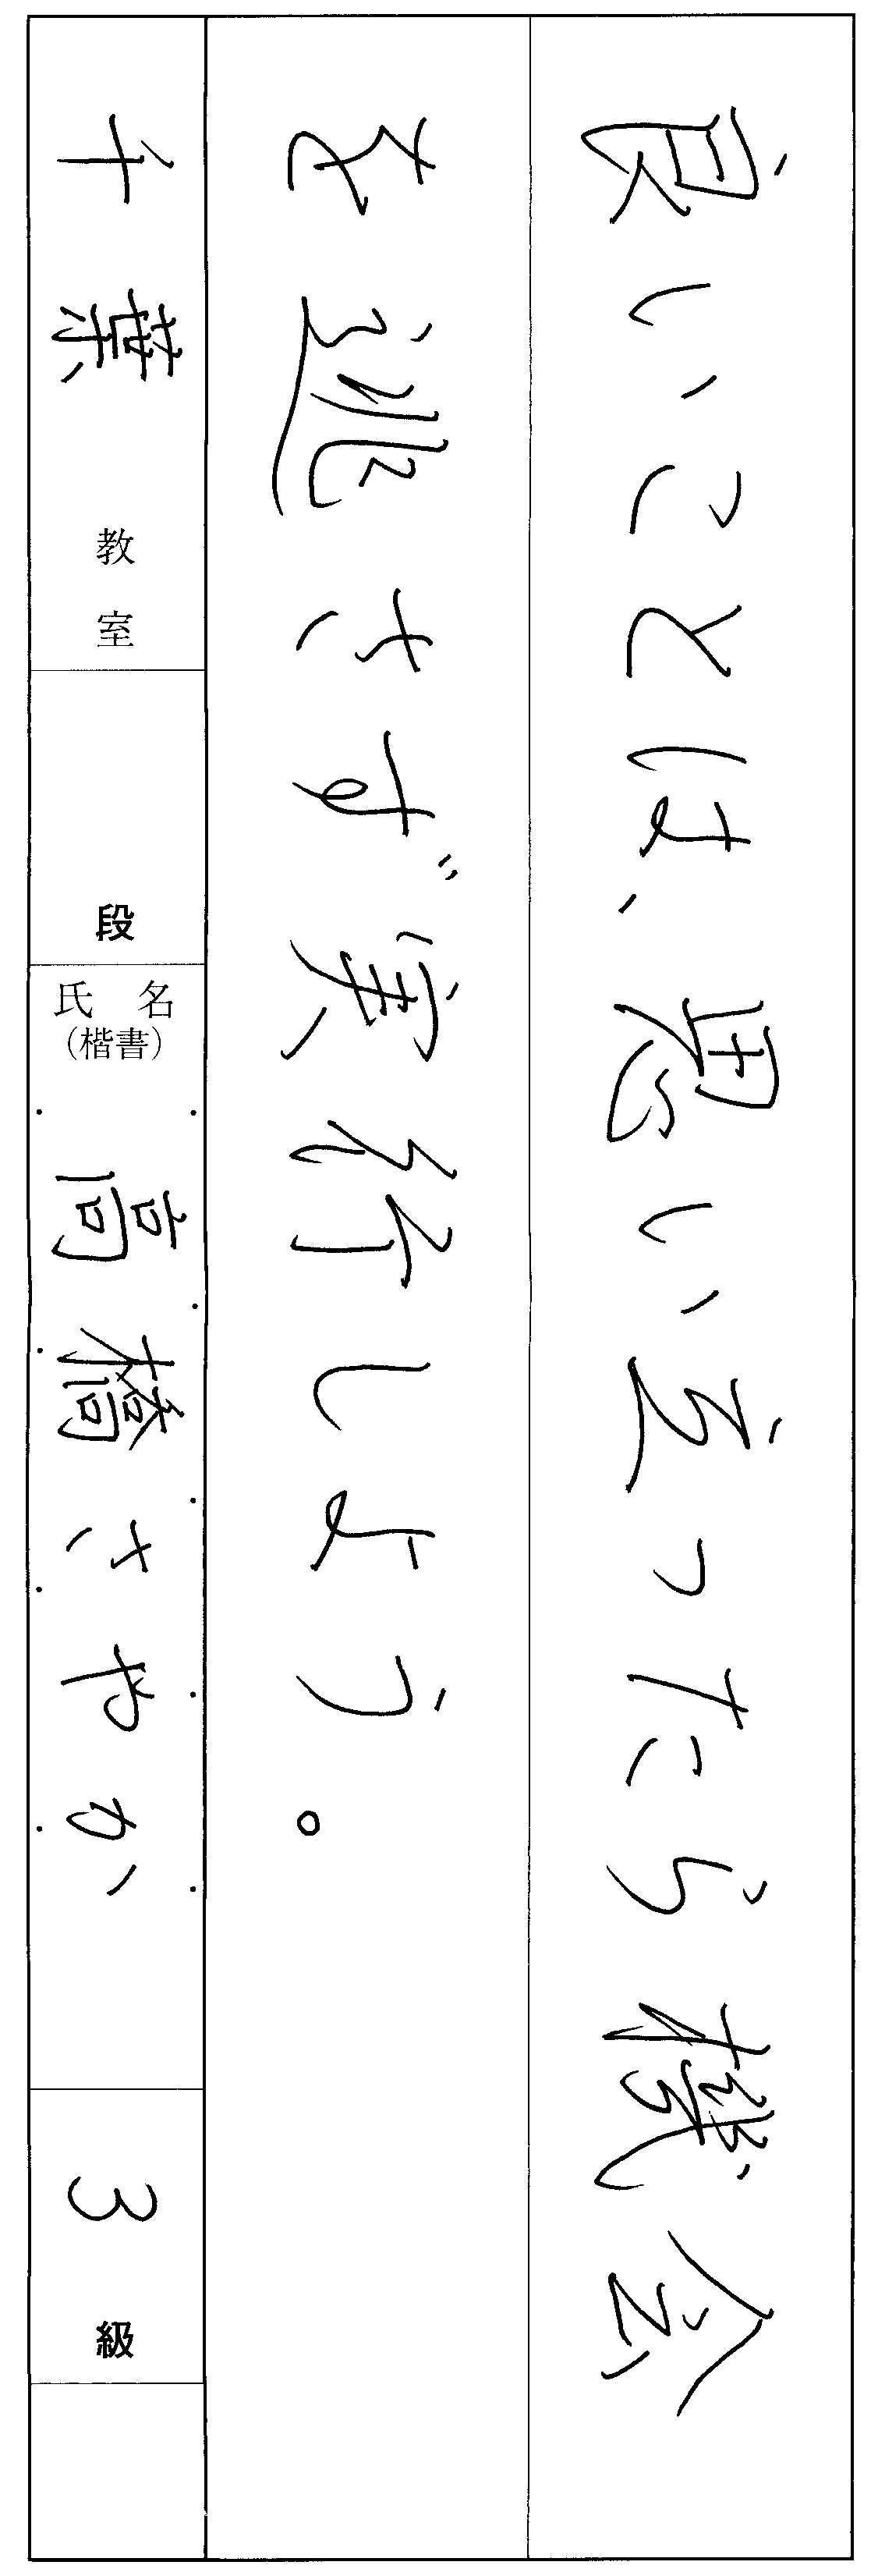 良いことは、思い立ったら機会
を逃さず実行しよう。
千葉教室 段 氏名(楷書) 高橋さやか 3級